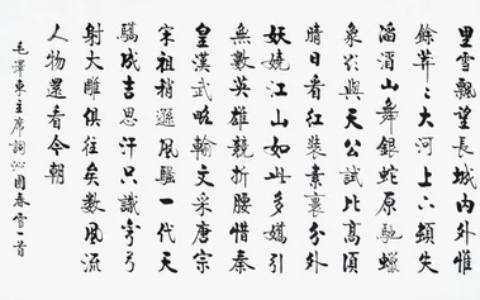 里雪飄望長城內外惟
餘莽〻大河上下頓失
滔滔山舞銀蛇原馳蠟
象欲與天公試比高須
晴日看紅裝素裹分外
妖嬈江山如此多嬌引
無數英雄競折腰惜秦
皇漢武略輸文采唐宗
宋祖稍遜風騷一代天
驕成吉思汗只識彎弓
射大雕俱往矣数風流
人物還看今朝
毛澤東主席詞沁園春雪一首